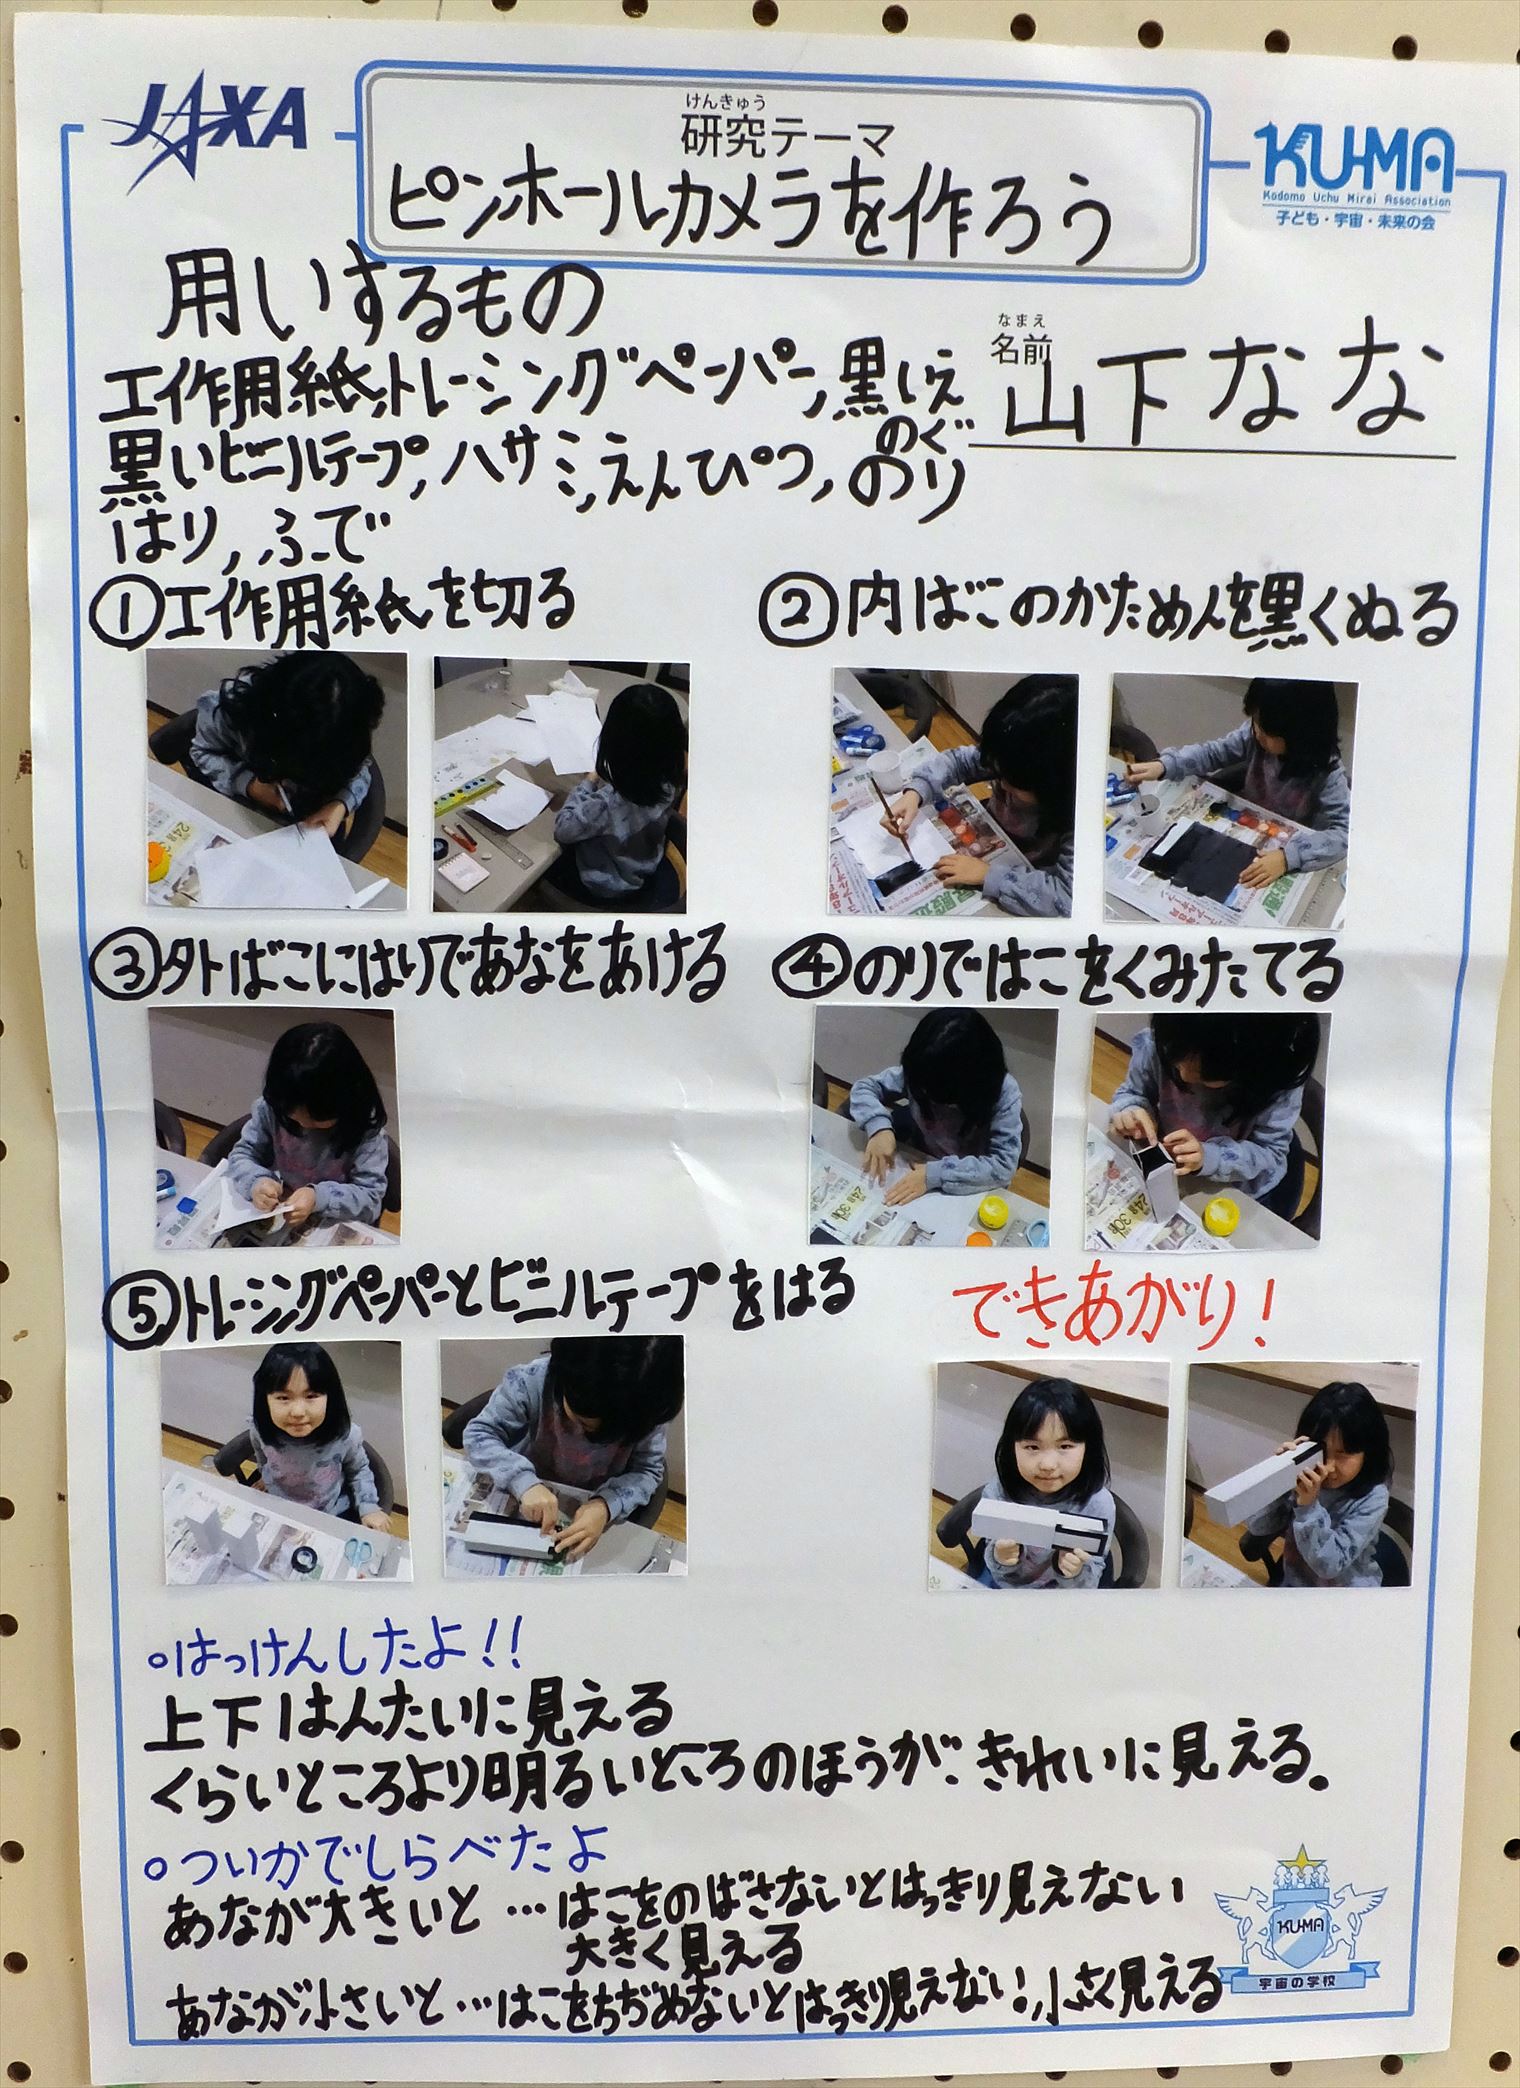 JAXA
けんきゅう
研究テーマ
ピンホールカメラを作ろう
KU-MA
Kodomo Uchu Mirai Association
子ども・宇宙・未来の会
用いするもの
なまえ
名前
山下なな
工作用紙,トレーシングペーパー,黒いえ
のぐ
黒いビニルテープ,ハサミ,えんぴつ,のり
はり,ふで
①工作用紙を切る
②内ばこのかためんを黒くぬる
③外ばこにはりであなをあける
④のりではこをくみたてる
⑤トレーシングペーパーとビニルテープをはる
できあがり!
○はっけんしたよ!!
上下はんたいに見える
くらいところより明るいところのほうが、きれいに見える。
○ついかでしらべたよ
あなが大きいと…はこをのばさないとはっきり見えない
大きく見える
あなが小さいと…はこをちぢめないとはっきり見えない。小さく見える
KU-MA
宇宙の学校